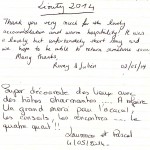 Limity 2014
Thank you very much for the lovely
accommodation and warm hospitality. It was
a lovely but unfortunately short stay and we
hope to be able to return sometime soon
Many thanks,
& Julien 02/05/14
Super découverte des lieux avec
des hôtes charmantes.... A refaire
Un grand merci pour l'accueil,
les conseils, les rencontres .... Le
quatre quart !!
Laurence et Pascal
4/05/2014.